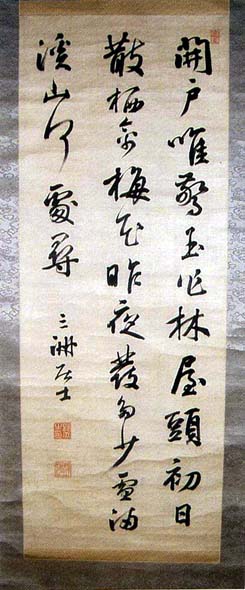 開戸唯驚玉作林屋頭初日
散栖禽梅花昨夜發多少雪滿
溪山何處尋 三洲居士